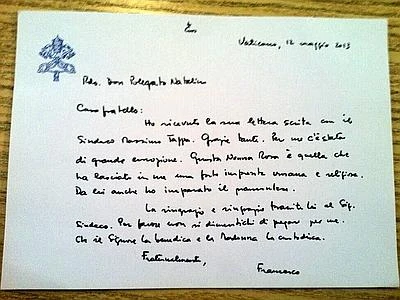 Vaticano, 12 maggio 2013
Rdo. Don Polegato Natalino
Caro fratello:
Ho ricevuto la sua lettera scritta con il
Sindaco Massimo Tappa. Grazie tante. Per me c'è stato
di grande emozione. Questa Nonna Rosa è quella che
ha lasciato in me una forte impronta umana e religiosa.
Da lei anche ho imparato il piemontese.
La ringrazio e ringrazio tramite lei al Sig.
Sindaco. Per favore non si dimentichi di pregar per me.
Che il Signore la benedica e la Madonna la custodisca.
Fraternalmente,
Francesco